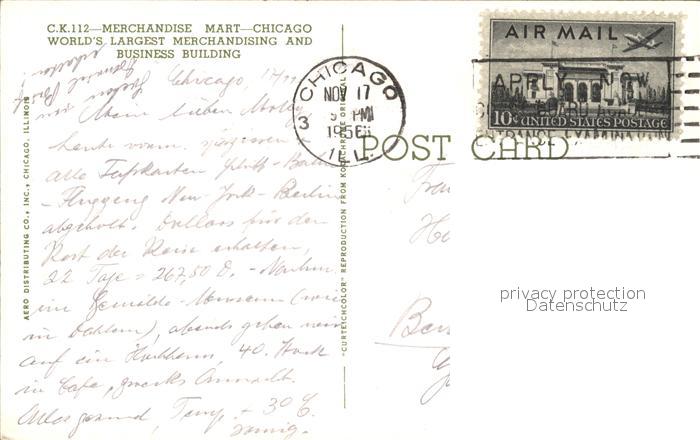 C.K.112—MERCHANDISE MART—CHICAGO
WORLD'S LARGEST MERCHANDISING AND
BUSINESS BUILDING
Chicago, 17/11
Mein lieben
heute vorm.
alle Fahrkarten Schiff-Bahn
-Flugzeug New-York-Berlin
abgeholt. Dollars für den
Rest der Reise erhalten,
22 Tage = 267,50 D. - Nachm.
im Gemälde-Museum (wie
in Dahlem), abends gehen wir
auf ein Hochhaus, 40. Stock
in Cafe, zwecks Aussicht.
Alles gesund, Temp. + 3° C.
sonnig.
AERO DISTRIBUTING CO., INC., CHICAGO, ILLINOIS
"CURTEICHCOLOR" REPRODUCTION FROM KODACHROME ORIGINAL
POST CARD
CHICAGO
NOV 17
3 PM
195
ILL.
AIR MAIL
APPLY NOW
ENTRANCE EXAMINATION
10¢ UNITED STATES POSTAGE
Frau
He
Ber
privacy protection
Datenschutz